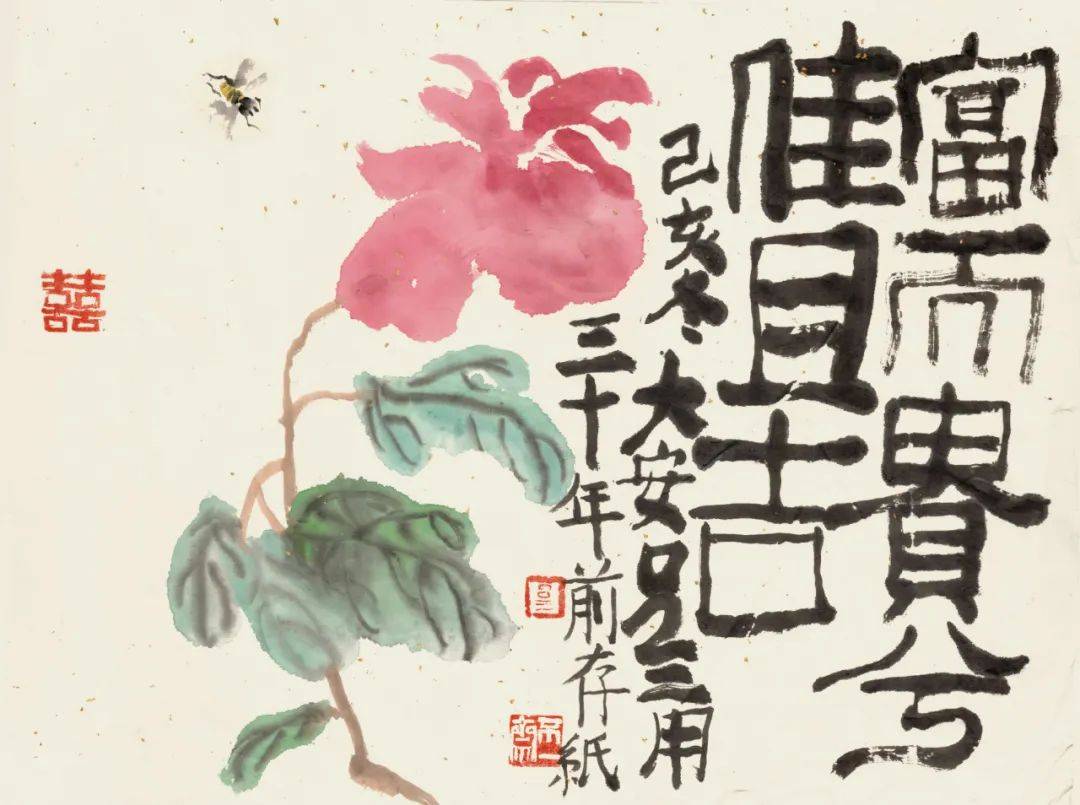 富而貴兮
佳且吉
己亥冬大安吕三用
三十年前存紙
囍